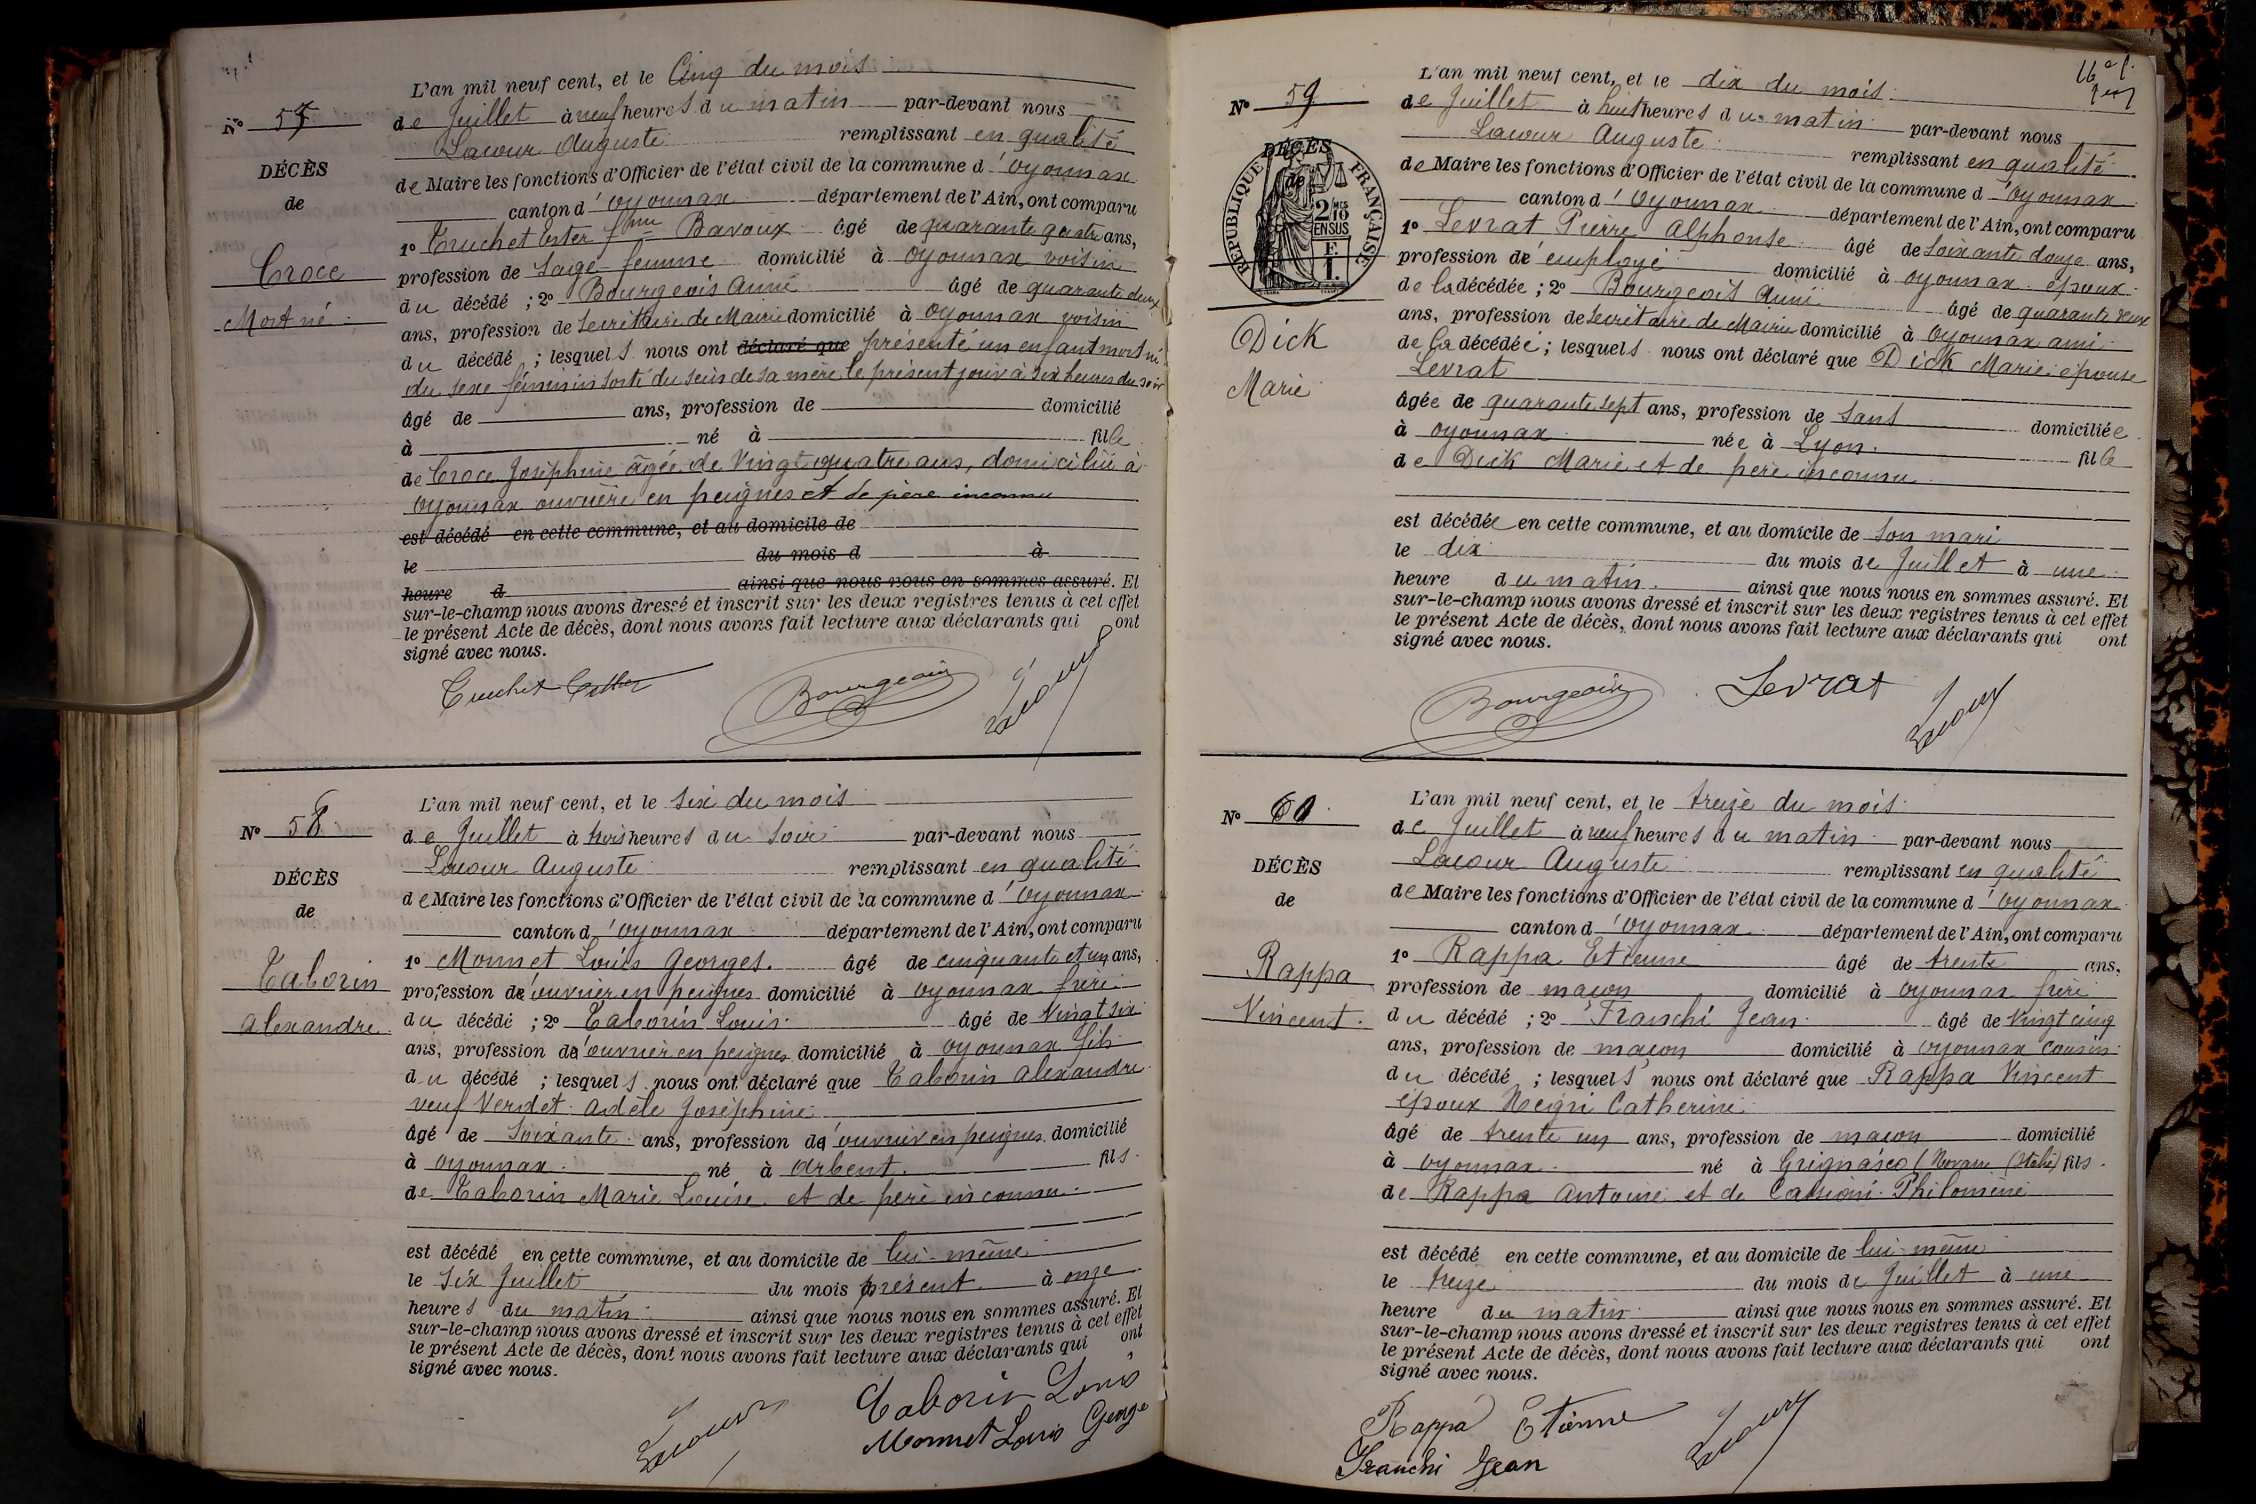 L'an mil neuf cent, et le Cinq du mois
Nº 57
de Juillet à neuf heures du matin par-devant nous
Lacour Auguste remplissant en qualité
DÉCÈS
de Maire les fonctions d'Officier de l'état civil de la commune d'Oyonnax
de
canton d'Oyonnax département de l'Ain, ont comparu
1º Truchet Ester fme Bavoux âgé de quarante quatre ans,
Croce
profession de Sage-femme domicilié à Oyonnax voisin
du décédé ; 2º Bourgeois Aimé âgé de quarante deux
Mort né
ans, profession de Secrétaire de Mairie domicilié à Oyonnax voisin
du décédé ; lesquels nous ont déclaré que présenté un enfant mort né
du sexe féminin sorti du sein de sa mère le présent jour à six heures du soir
âgé de ans, profession de domicilié
à né à fille
de Croce Joséphine âgée de Vingt quatre ans, domiciliée à
Oyonnax ouvrière en peignes et de père inconnu
est décédé en cette commune, et au domicile de
le du mois d à
heure d ainsi que nous nous en sommes assuré. Et
sur-le-champ nous avons dressé et inscrit sur les deux registres tenus à cet effet
le présent Acte de décès, dont nous avons fait lecture aux déclarants qui ont
signé avec nous.
Truchet Ester Bourgeois Lacour
L'an mil neuf cent, et le six du mois
Nº 58
de Juillet à trois heures du soir par-devant nous
Lacour Auguste remplissant en qualité
DÉCÈS
de Maire les fonctions d'Officier de l'état civil de la commune d'Oyonnax
de
canton d'Oyonnax département de l'Ain, ont comparu
1º Monnet Louis Georges. âgé de cinquante et un ans,
Taborin
profession d'ouvrier en peignes domicilié à Oyonnax frère
Alexandre
du décédé ; 2º Taborin Louis âgé de Vingt six
ans, profession d'ouvrier en peignes domicilié à Oyonnax fils
du décédé ; lesquels nous ont déclaré que Taborin Alexandre
veuf Verdet Adèle Joséphine
âgé de soixante ans, profession d'ouvrier en peignes domicilié
à Oyonnax né à Arbent. fils
de Taborin Marie Louise et de père inconnu
est décédé en cette commune, et au domicile de lui-même
le Six Juillet du mois présent à onze
heures du matin ainsi que nous nous en sommes assuré. Et
sur-le-champ nous avons dressé et inscrit sur les deux registres tenus à cet effet
le présent Acte de décès, dont nous avons fait lecture aux déclarants qui ont
signé avec nous.
Lacour Taborin Louis
Monnet Louis George
L'an mil neuf cent, et le dix du mois
Nº 59
de Juillet à huit heures du matin par-devant nous
Lacour Auguste remplissant en qualité
DÉCÈS
de
RÉPUBLIQUE FRANÇAISE
2 MES
10
EN SUS
de Maire les fonctions d'Officier de l'état civil de la commune d'Oyonnax
canton d'Oyonnax département de l'Ain, ont comparu
1º Levrat Pierre Alphonse âgé de soixante douze ans,
profession d'employé domicilié à Oyonnax époux
de la décédée ; 2º Bourgeois Aimé âgé de quarante deux
Dick
ans, profession de Secrétaire de Mairie domicilié à Oyonnax ami
de la décédée ; lesquels nous ont déclaré que Dick Marie épouse
Marie
Levrat
âgée de quarante sept ans, profession de sans domiciliée
à Oyonnax née à Lyon. fille
de Dick Marie et de père inconnu
est décédée en cette commune, et au domicile de son mari
le dix du mois de Juillet à une
heure du matin. ainsi que nous nous en sommes assuré. Et
sur-le-champ nous avons dressé et inscrit sur les deux registres tenus à cet effet
le présent Acte de décès, dont nous avons fait lecture aux déclarants qui ont
signé avec nous.
Bourgeois Levrat Lacour
L'an mil neuf cent, et le treize du mois
Nº 60
de Juillet à neuf heures du matin par-devant nous
Lacour Auguste remplissant en qualité
DÉCÈS
de Maire les fonctions d'Officier de l'état civil de la commune d'Oyonnax
de
canton d'Oyonnax département de l'Ain, ont comparu
1º Rappa Etienne âgé de trente ans,
Rappa
profession de maçon domicilié à Oyonnax frère
Vincent
du décédé ; 2º Franchi Jean âgé de Vingt cinq
ans, profession de maçon domicilié à Oyonnax cousin
du décédé ; lesquels nous ont déclaré que Rappa Vincent
époux Negri Catherine
âgé de trente un ans, profession de maçon domicilié
à Oyonnax né à Grignasco (Novare (Italie) fils
de Rappa Antoine et de Philomène
est décédé en cette commune, et au domicile de lui-même
le treize du mois de Juillet à une
heure du matin ainsi que nous nous en sommes assuré. Et
sur-le-champ nous avons dressé et inscrit sur les deux registres tenus à cet effet
le présent Acte de décès, dont nous avons fait lecture aux déclarants qui ont
signé avec nous.
Rappa Etienne Lacour
Franchi Jean